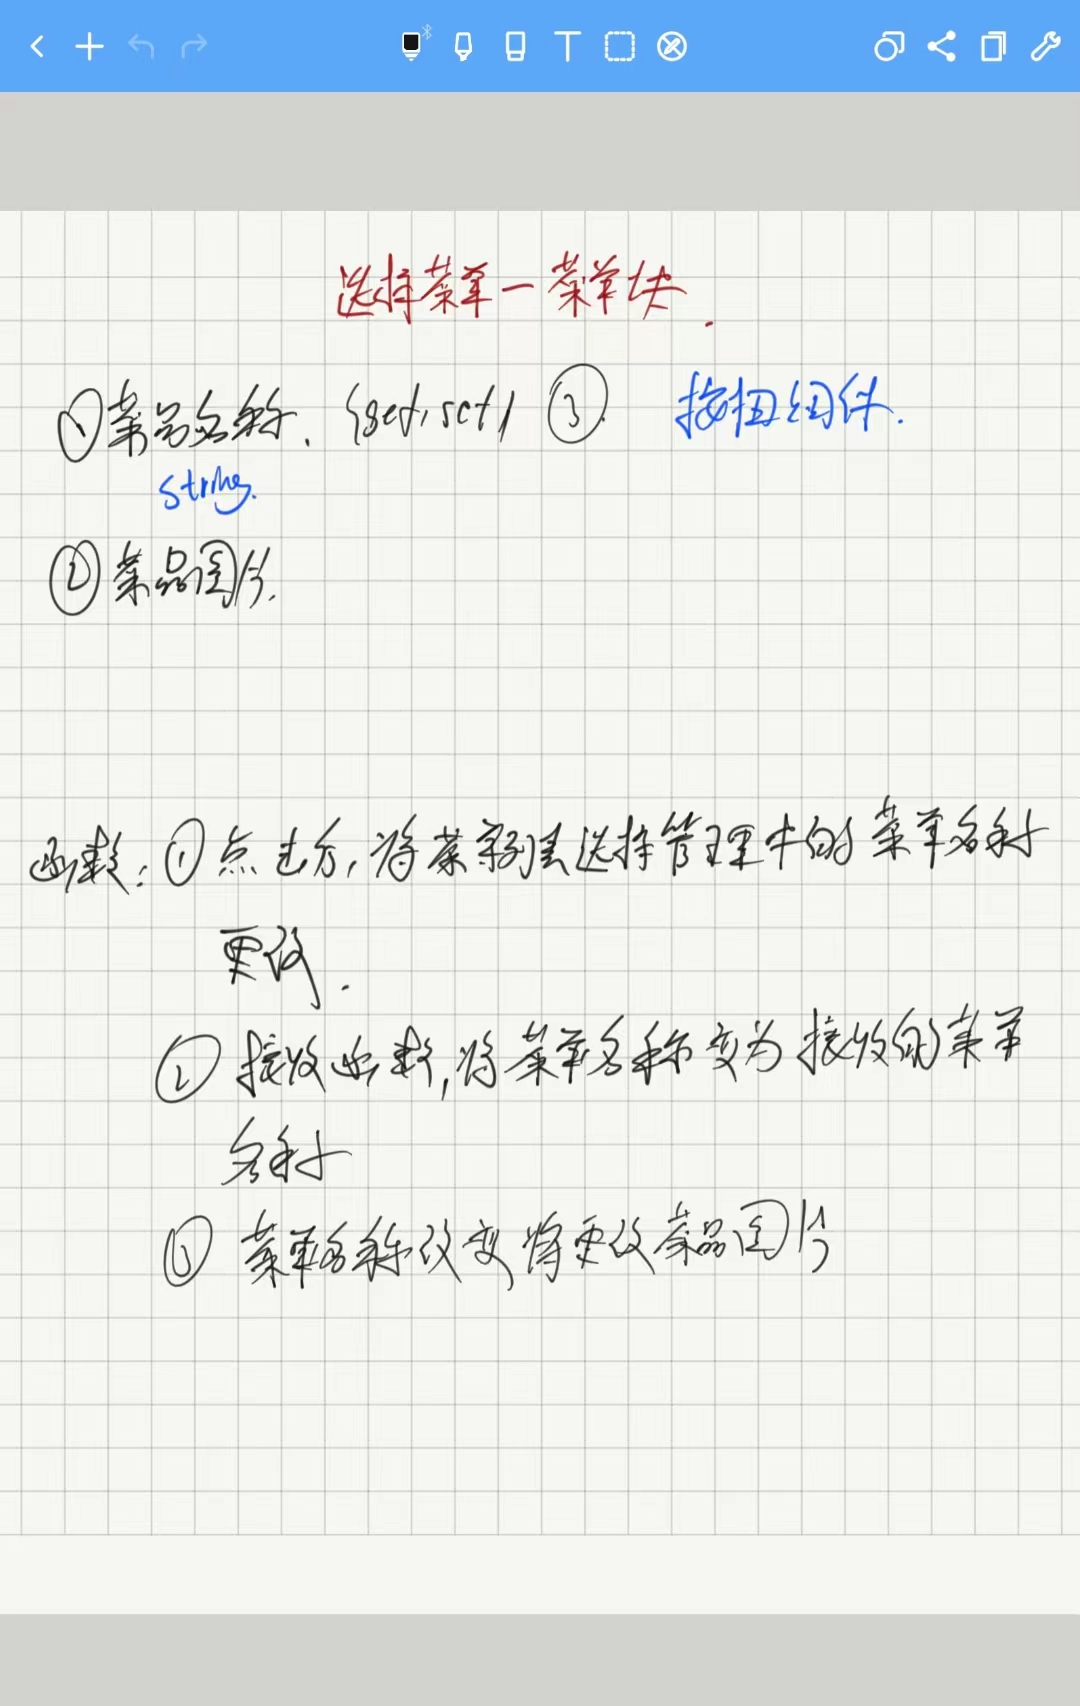 选择菜单一菜单块.
①菜品名称. {get,set} ③. 按扭组件.
string.
②菜品图片.
函数:①点击后,将菜单列表选择管理中的菜单名称
更改.
② 接收函数,将菜单名称变为接收的菜单
名称
③ 菜单名称改变,将更改菜品图片